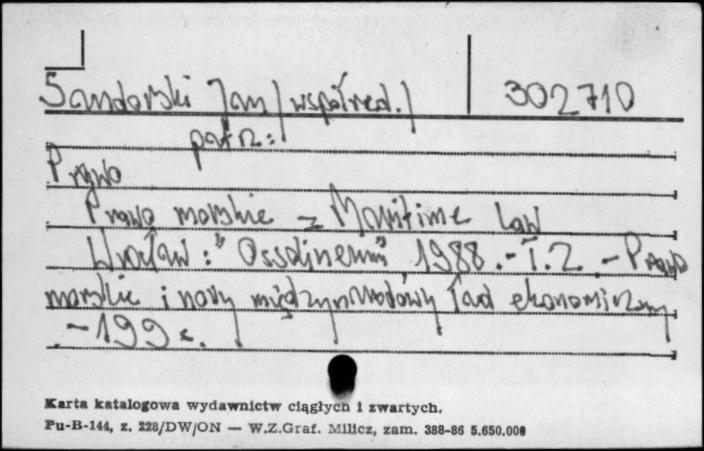 Sandorski Jan /współred./ 302710
patrz:
Prawo
Prawo morskie = Maritime Law
Wrocław : "Ossolineum" 1988. - T.2. - Prawo
morskie i nowy międzynarodowy ład ekonomiczny
- 199 s.
Karta katalogowa wydawnictw ciągłych i zwartych.
Pu-B-144, z. 228/DW/ON — W.Z.Graf. Milicz, zam. 388-86 5.650.000